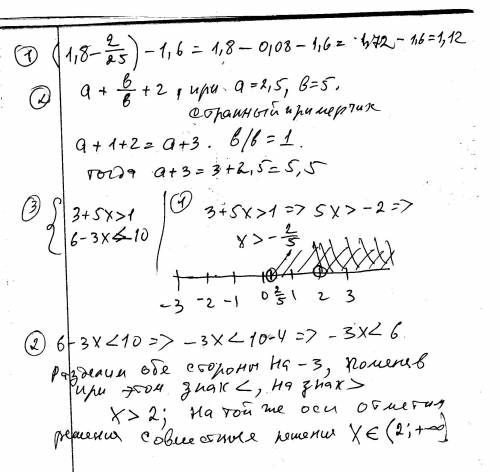 ① (1,8-2/25)-1,6 = 1,8-0,08-1,6= 1,72-1,6=1,12
② a + в/в + 2, при a=2,5, в=5.
странный примерчик
a+1+2= a+3. в/в = 1.
тогда a+3=3+2,5=5,5
③ { 3+5x>1
6-3x<10
① 3+5x>1 => 5x>-2 =>
x>-2/5
-3 -2 -1 0 2/5 1 2 3
② 6-3x<10 => -3x<10-4 => -3x<6
Разделим обе стороны на -3, поменяв
при этом знак <, на знак >
x>2; на той же оси отметим
решения совместные решения x∈(2;+∞]